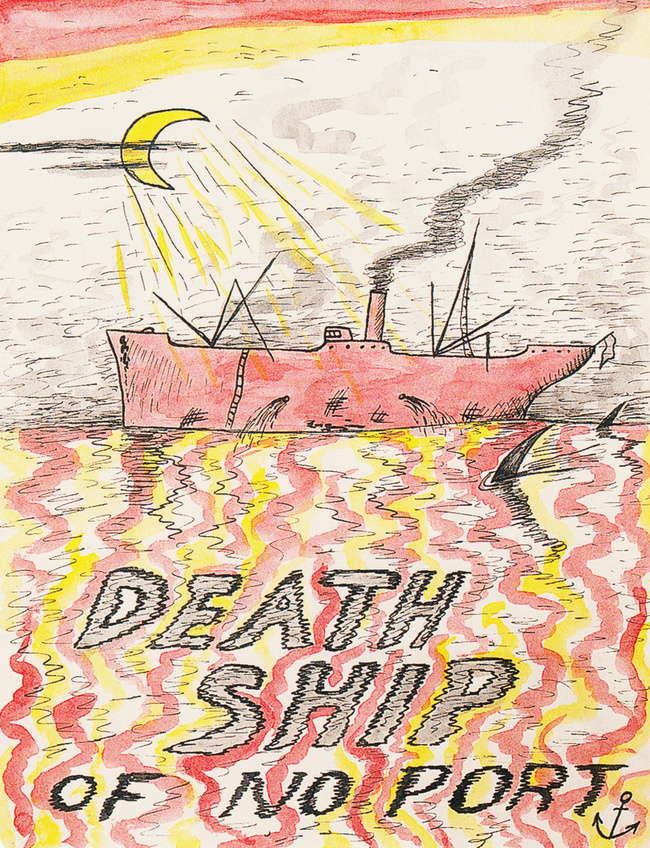 DEATH
SHIP
OF NO PORT